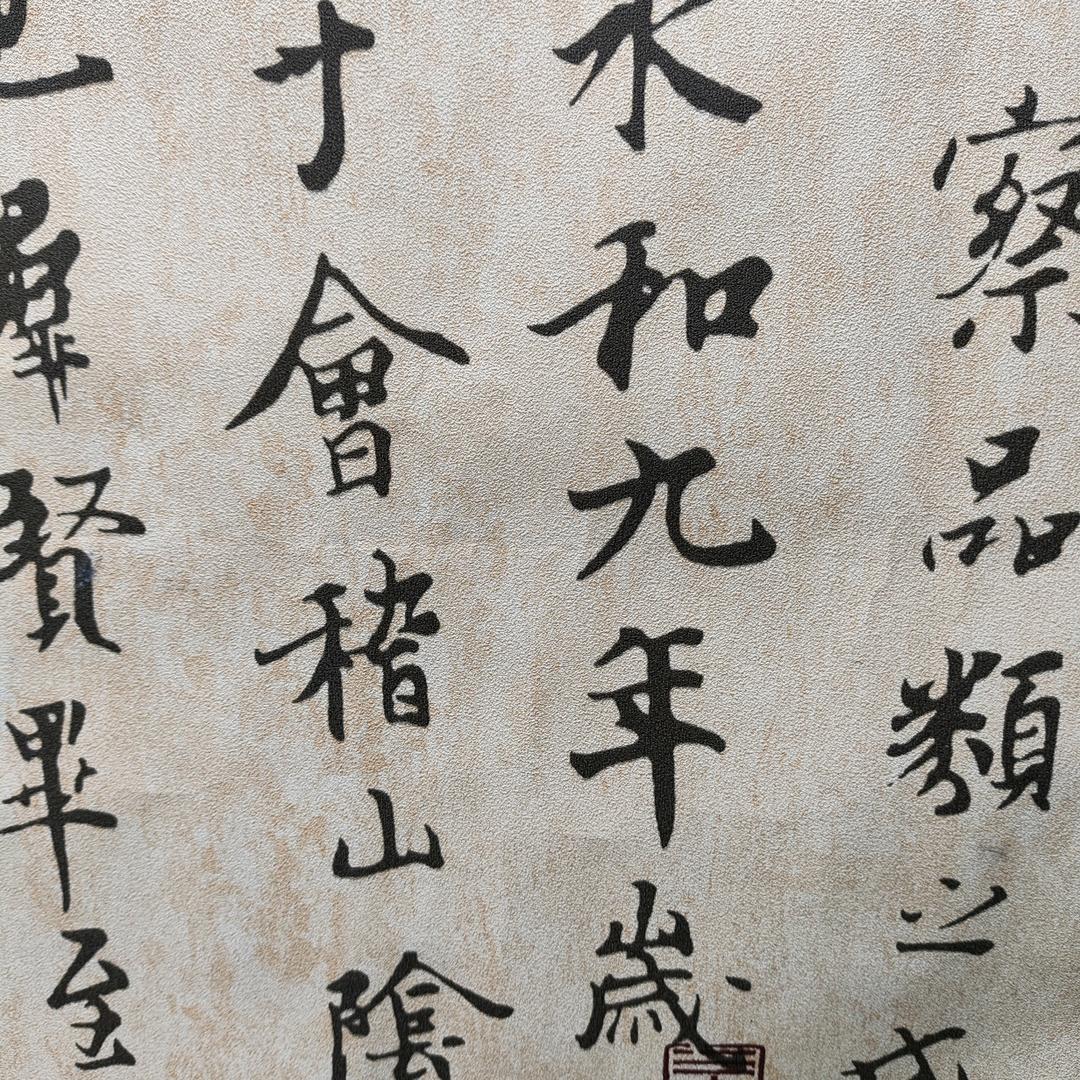 察品類之
永和九年歲
于會稽山陰
也羣賢畢至